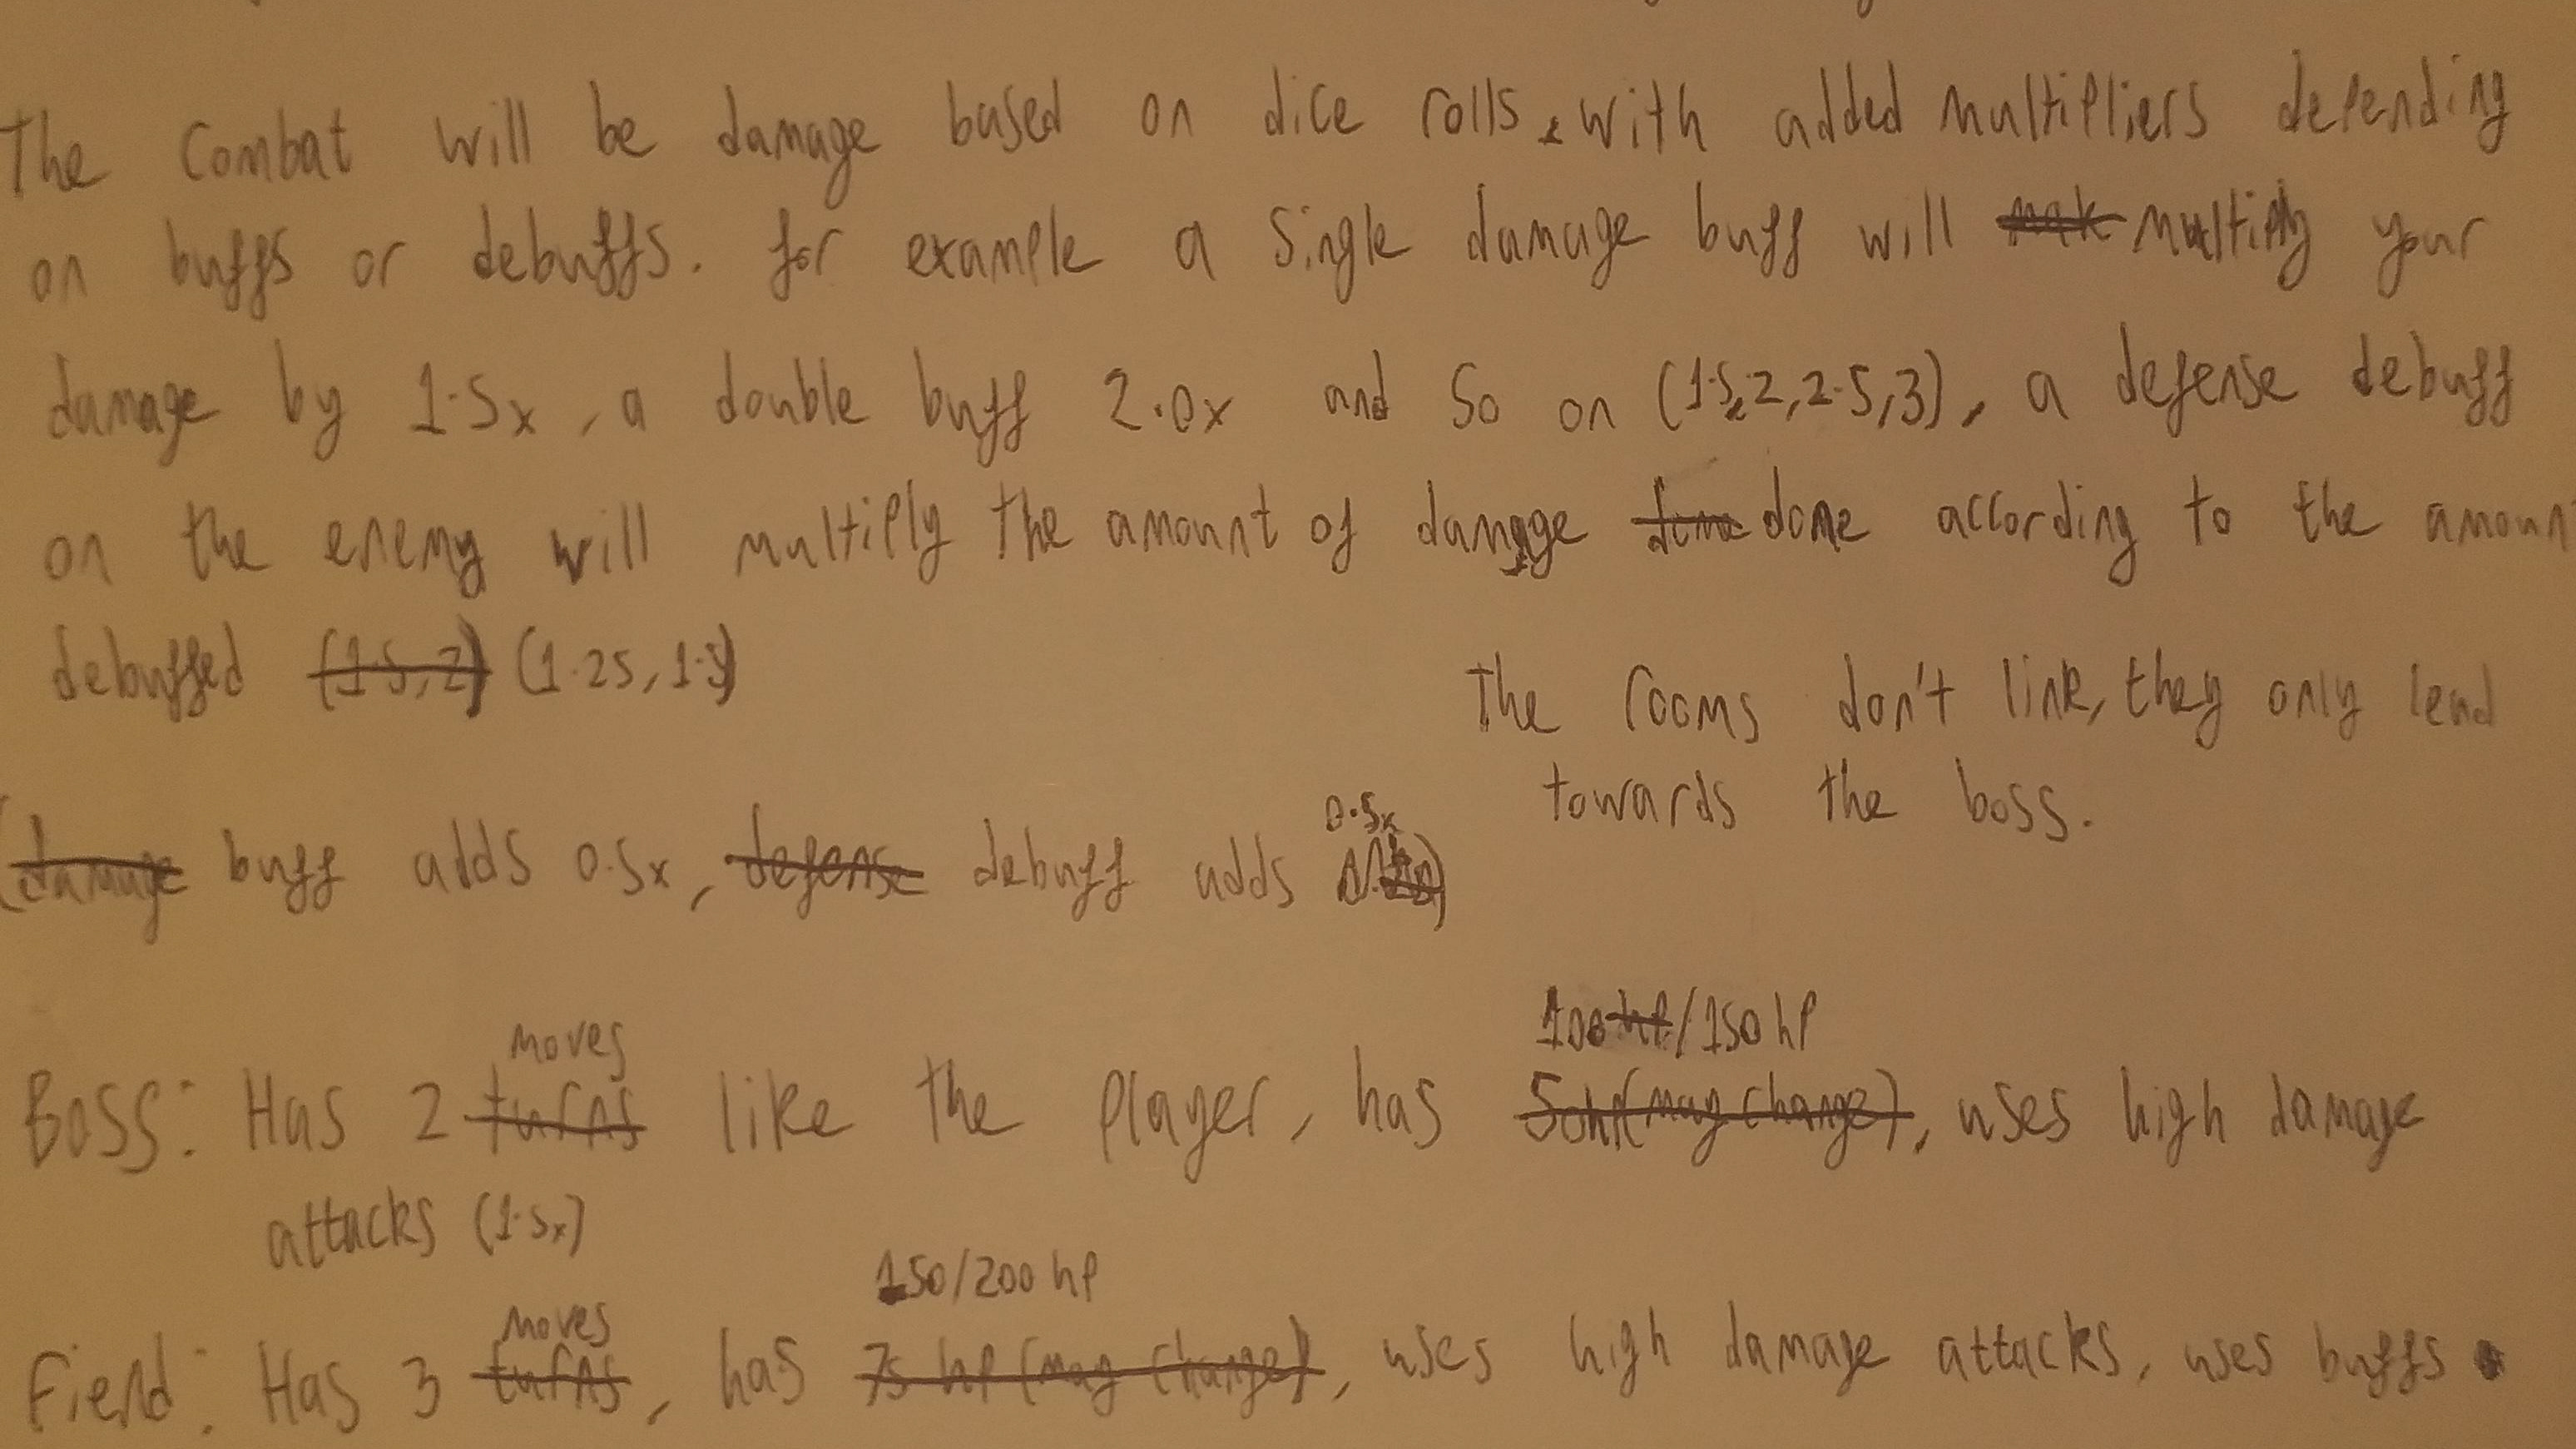 The Combat will be damage based on dice rolls, with added multipliers depending
on buffs or debuffs. for example a Single damage buff will multiply your
damage by 1.5x, a double buff 2.0x and so on (1.5,2,2.5,3), a defense debuff
on the enemy will multiply the amount of damage done according to the amoun
debuffed (1.5,2) (1.25, 1.5)
The rooms don't link, they only lead
towards the boss.
(damage buff adds 0.5x, defense debuff adds
0.5x
moves
100hp/150hp
Boss: Has 2 turns like the Player, has 50hp(may change), uses high damage
attacks (1.5x)
150/200 hp
moves
Fiend: Has 3 turns, has 75 hp (may change), uses high damage attacks, uses buffs